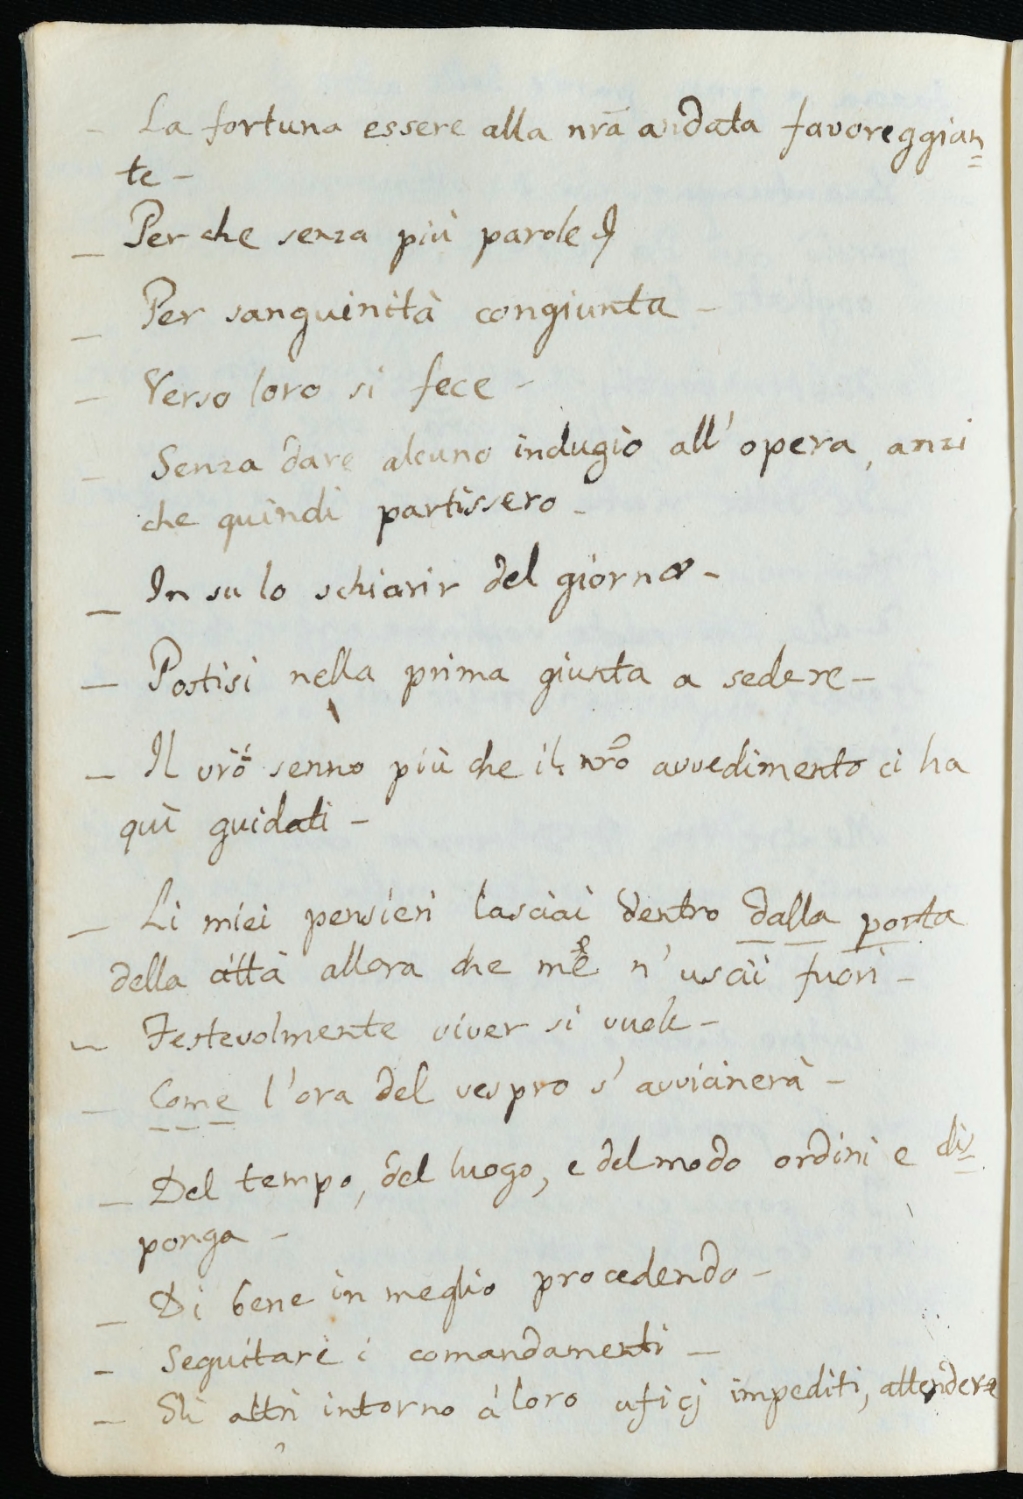 - La fortuna essere alla nr̃a andata favoreggian=
te -
- Per che senza più parole
- Per sanguinità congiunta -
- Verso loro si fece -
- Senza dare alcuno indugio all' opera, anzi
che quindi partissero -
- In su lo schiarir del giorno -
- Postisi nella prima giunta a sedere -
- Il vrõ senno più che il nrõ avvedimento ci ha
quì guidati -
- Li miei pensieri lasciai dentro dalla porta
della città allora che me n' uscii fuori -
- Festevolmente viver si vuole -
- Come l'ora del vespro s' avvicinerà -
- Del tempo, del luogo, e del modo ordini e dis=
ponga -
- Di bene in meglio procedendo -
- Seguitare i comandamenti -
- Gli altri intorno a' loro uficj impediti, attendere